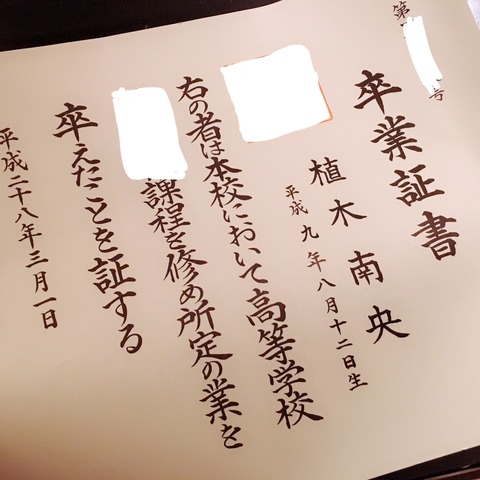 第 号
卒業証書
植木南央
平成九年八月十二日生
右の者は本校において高等学校
課程を修め所定の業を
卒えたことを証する
平成二十八年三月一日